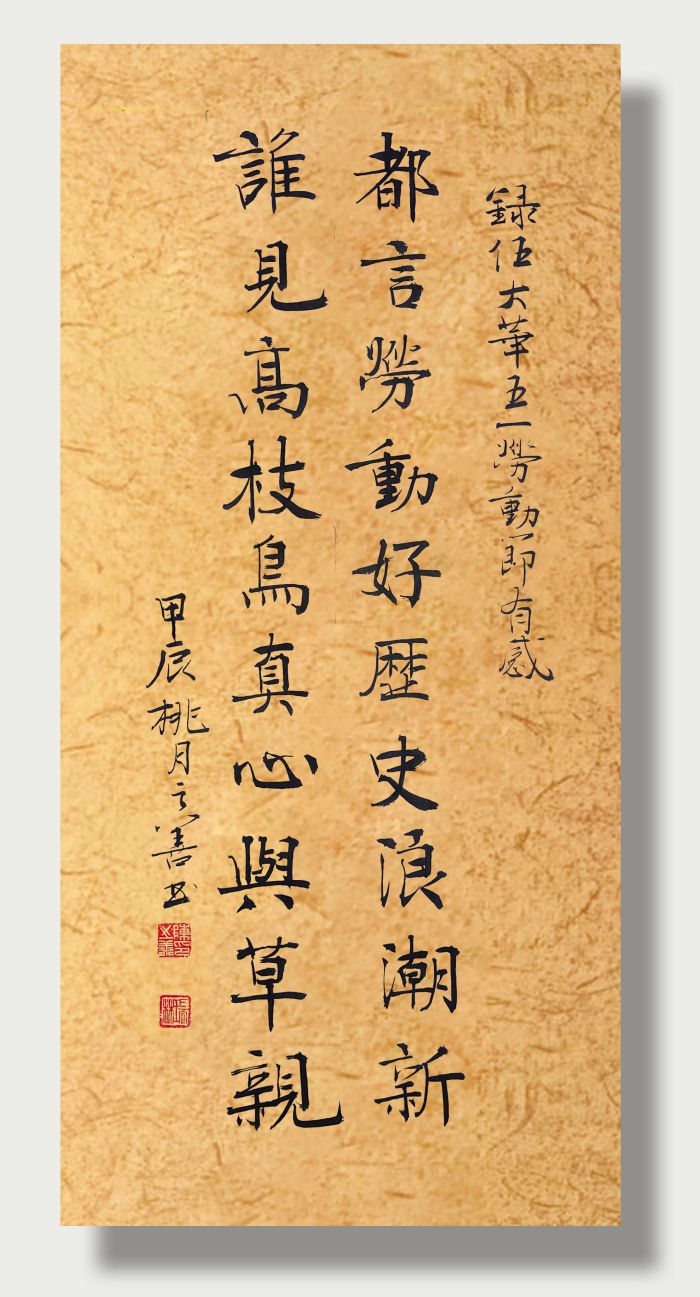 録伍大華五一勞動節有感
都言勞動好歷史浪潮新
誰見高枝鳥真心與草親
甲辰桃月之善书
陳之善印